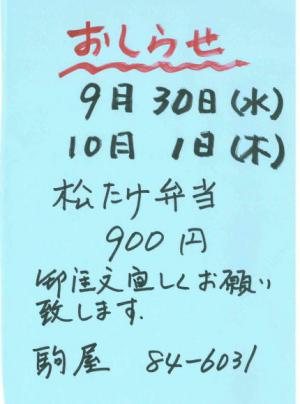 おしらせ
9月30日(水)
10月1日(木)
松たけ弁当
900円
御注文宜しくお願い
致します.
駒屋 84-6031